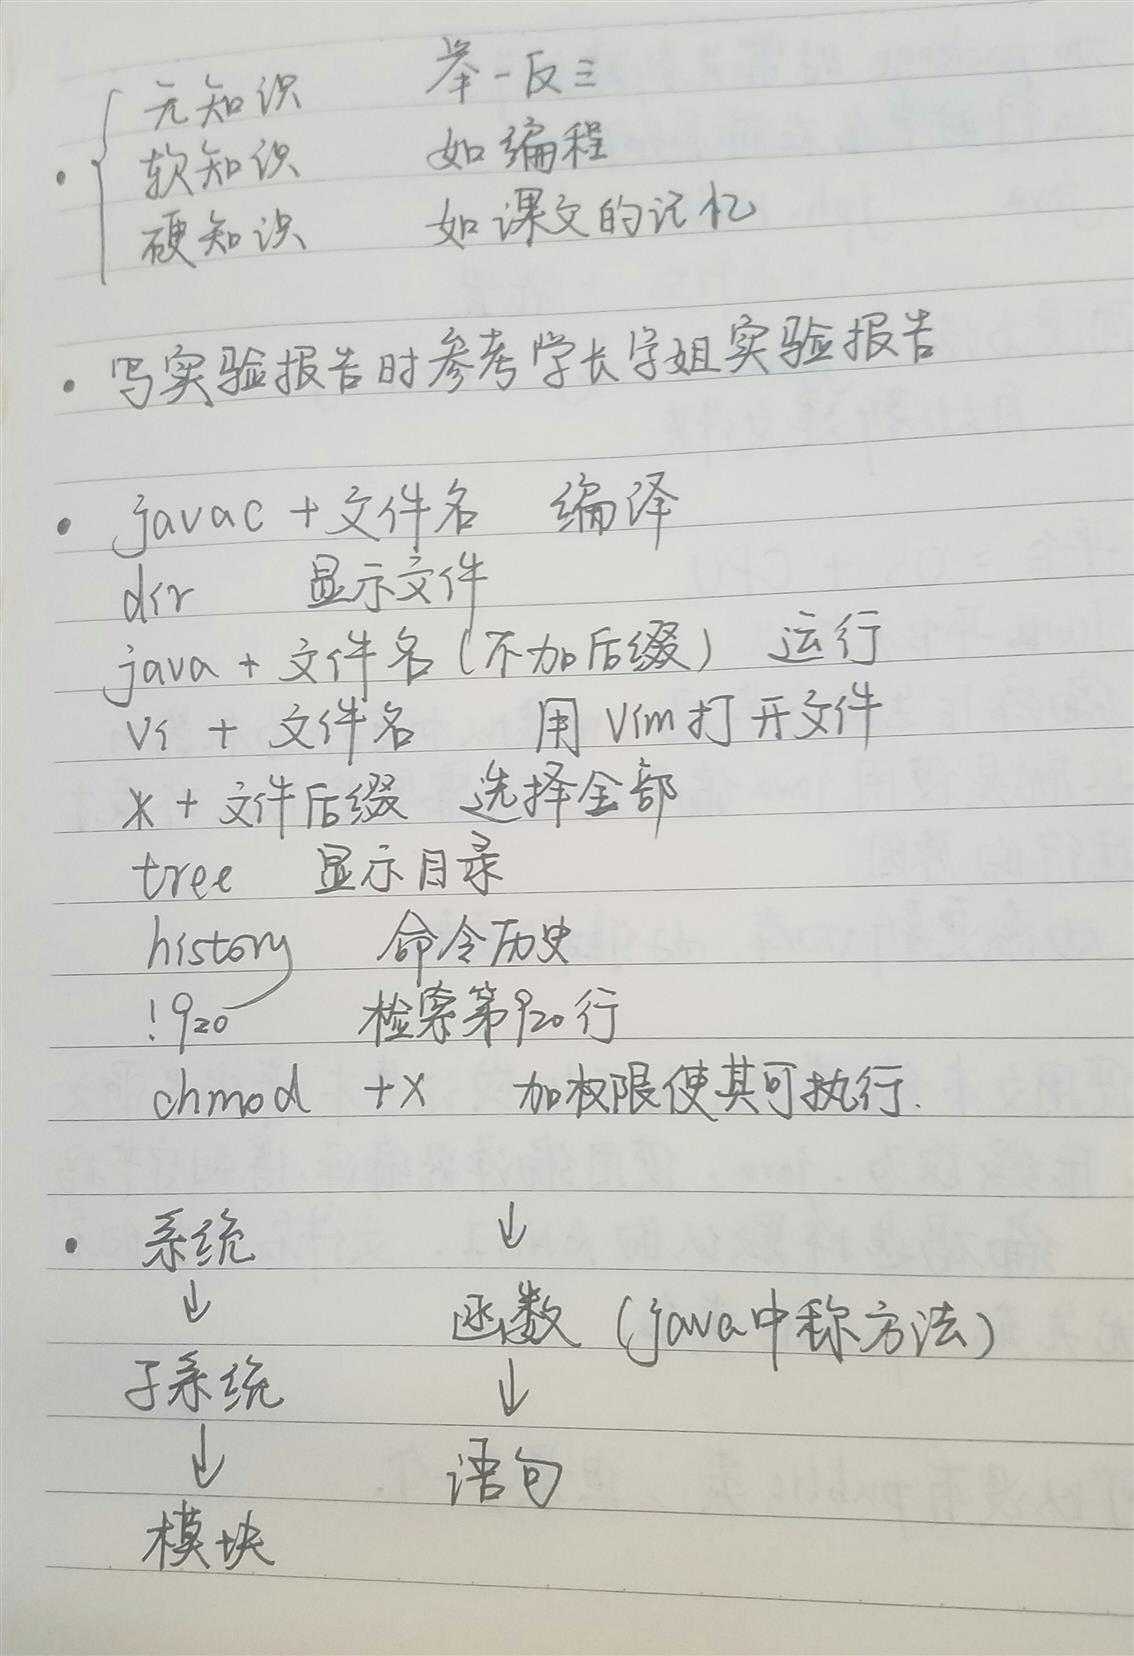 元知识 举一反三
软知识 如编程
硬知识 如课文的记忆
写实验报告时参考学长学姐实验报告
javac + 文件名 编译
dir 显示文件
java + 文件名(不加后缀) 运行
vi + 文件名 用Vim打开文件
* + 文件后缀 选择全部
tree 显示目录
history 命令历史
!920 检索第920行
chmod +x 加权限使其可执行.
系统
↓
子系统
↓
模块
↓
函数(java中称方法)
↓
语句